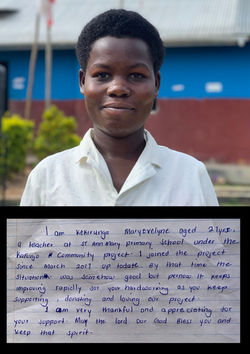 I am Kekirunga Maryevelyne aged 21yrs.
a teacher at St Ann Mary primary School under the
Kafunjo K Community project. I joined the project
Since March 2017 up todate. By that time the
Situation was somehow good but pernow it keeps
improving rapidly for your hardworking as you keep
supporting, donating and loving our project.
I am very thankful and appreciating for
your support. May the lord Our God Bless you and
keep that spirit.